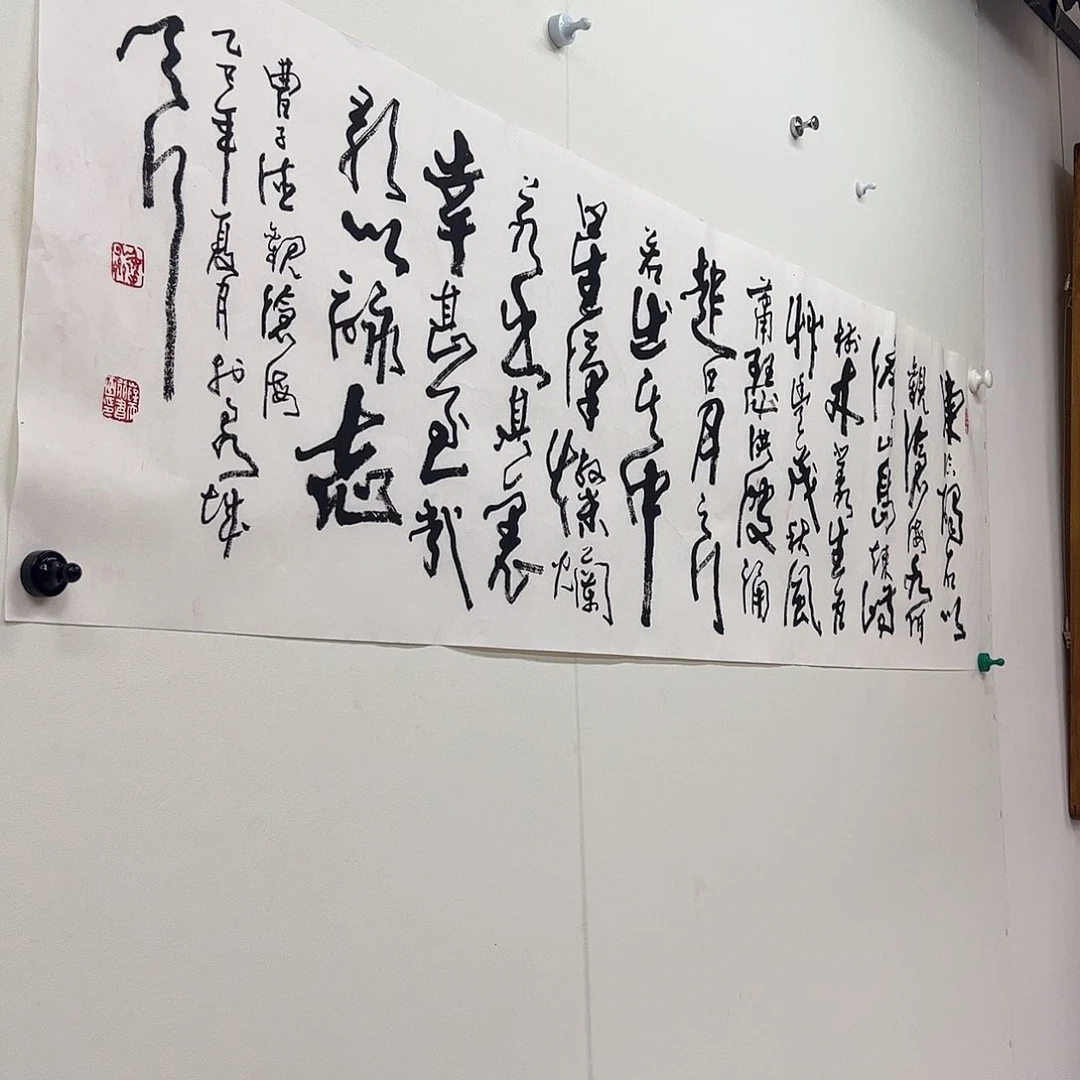 東臨碣石以
觀滄海水何
澹澹山島竦峙
樹木叢生百
艸豐茂秋風
蕭瑟洪波涌
起日月之行
若出其中
星漢燦爛
若出其裏
幸甚至哉
歌以詠志
曹孟德觀滄海
乙巳年夏月於泉城
天行